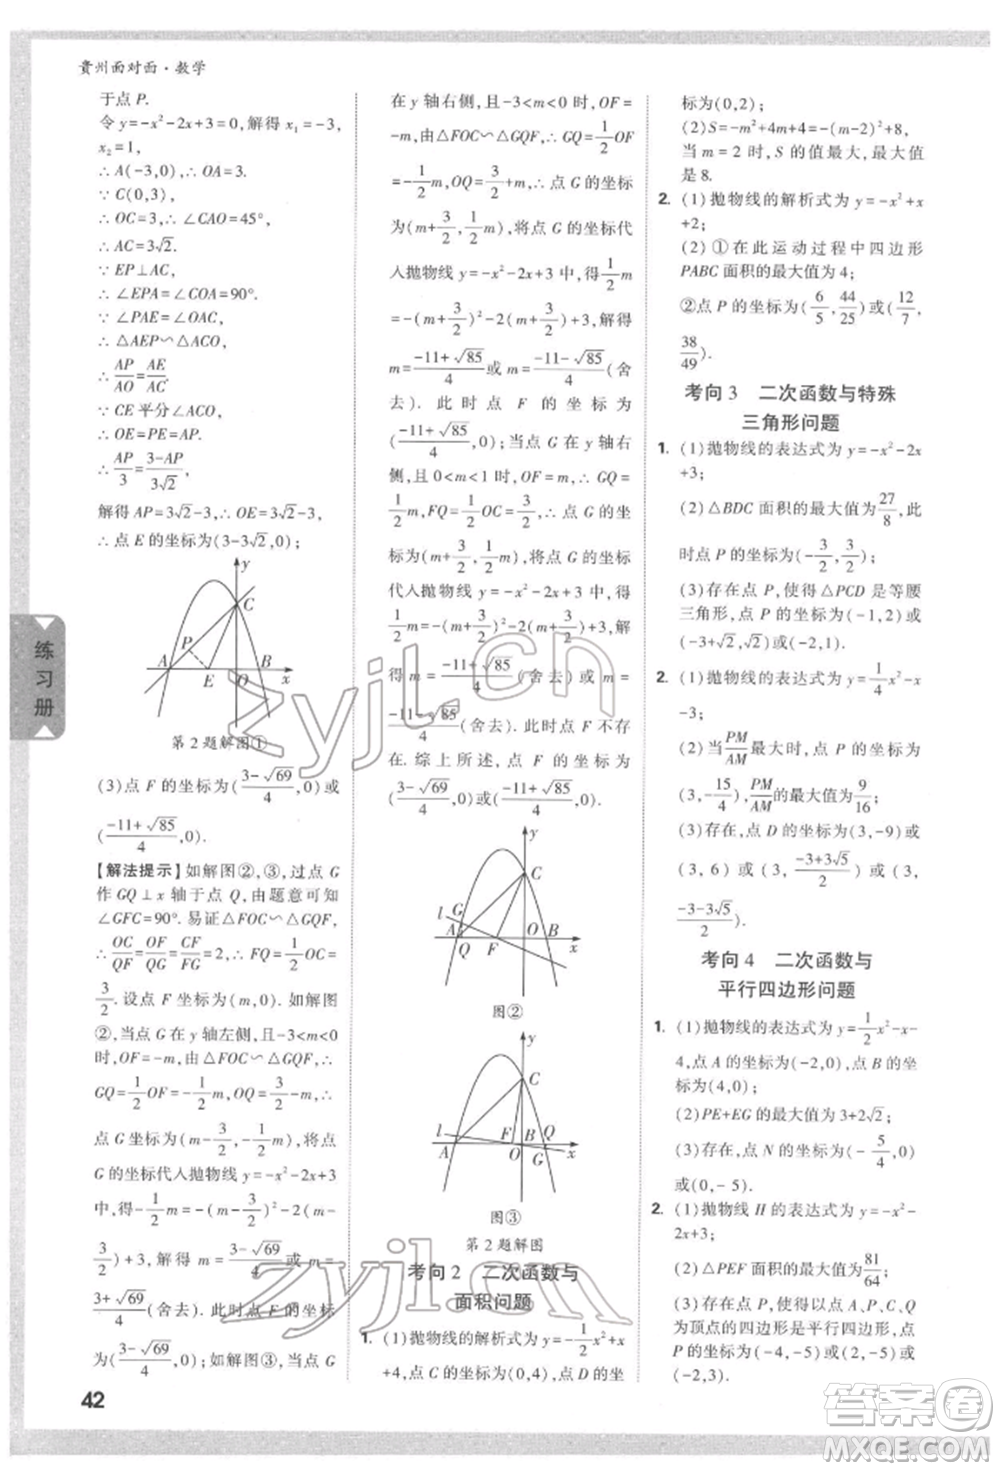 贵州面对面·数学
于点 P.
令 y=-x²-2x+3=0,解得 x₁=-3,
x₂=1,
∴ A(-3,0),∴ OA=3.
∵ C(0,3),
∴ OC=3,∴ ∠CAO=45°,
∴ AC=3√2.
∵ EP⊥AC,
∴ ∠EPA=∠COA=90°.
∵ ∠PAE=∠OAC,
∴ △AEP∽△ACO,
∴ AP/AO=AE/AC.
∵ CE 平分∠ACO,
∴ OE=PE=AP,
∴ AP/3=(3-AP)/(3√2),
解得 AP=3√2-3,∴ OE=3√2-3,
∴ 点 E 的坐标为(3-3√2,0);
y
C
P
A
B
E
O
x
第 2 题解图①
(3)点 F 的坐标为((3-√69)/4,0)或
((-11+√85)/4,0).
【解法提示】如解图②,③,过点 G
作 GQ⊥x 轴于点 Q,由题意可知
∠GFC=90°. 易证△FOC∽△GQF,
∴ OC/QF=OF/QG=CF/FG=2,∴ QF=1/2OC=
3/2. 设点 F 坐标为(m,0). 如解图
②,当点 G 在 y 轴左侧,且-3<m<0
时,OF=-m,由△FOC∽△GQF,
GQ=1/2OF=-1/2m,OQ=3/2-m,∴
点 G 坐标为(m-3/2,-1/2m),将点
G 的坐标代入抛物线 y=-x²-2x+3
中,得-1/2m=-(m-3/2)²-2(m-
3/2)+3,解得 m=(3-√69)/4或 m=
(3+√69)/4(舍去). 此时点 F 的坐标
为((3-√69)/4,0);如解图③,当点 G
在 y 轴右侧,且-3<m<0 时,OF=
-m,由△FOC∽△GQF,∴ GQ=1/2OF
=-1/2m,OQ=3/2+m,∴ 点 G 的坐标
为(m+3/2,1/2m),将点 G 的坐标代
入抛物线 y=-x²-2x+3 中,得1/2m
=-(m+3/2)²-2(m+3/2)+3,解得
m=(-11+√85)/4或 m=(-11-√85)/4(舍
去). 此时点 F 的坐标为
((-11+√85)/4,0);当点 G 在 y 轴右
侧,且 0<m<1 时,OF=m,∴ GQ=
1/2m,FQ=1/2OC=3/2,∴ 点 G 的坐
标为(m+3/2,1/2m),将点 G 的坐标
代入抛物线 y=-x²-2x+3 中,得
1/2m=-(m+3/2)²-2(m+3/2)+3,解
得 m=(-11+√85)/4(舍去)或 m=
(-11-√85)/4(舍去),∴ 点 F 不存
在. 综上所述,点 F 的坐标为
((3-√69)/4,0)或((-11+√85)/4,0).
y
C
l
G
A
Q
F
O
B
x
图②
y
C
l
A
F
O
B
Q
G
x
图③
第 2 题解图
考向 2 二次函数与
面积问题
1. (1)抛物线的解析式为 y=-1/2x²+x
+4,点 C 的坐标为(0,4),点 D 的坐
标为(0,2);
(2)S=-m²+4m+4=-(m-2)²+8,
当 m=2 时,S 的值最大,最大值
是 8.
2. (1)抛物线的解析式为 y=-x²+x
+2;
(2)①在此运动过程中四边形
PABC 面积的最大值为 4;
②点 P 的坐标为(6/5,44/25)或(12/7,
38/49).
考向 3 二次函数与特殊
三角形问题
1. (1)抛物线的表达式为 y=-x²-2x
+3;
(2)△BDC 面积的最大值为27/8,此
时点 P 的坐标为(-3/2,3/2);
(3)存在点 P,使得△PCD 是等腰
三角形,点 P 的坐标为(-1,2)或
(-3+√2,√2)或(-2,1).
2. (1)抛物线的表达式为 y=1/4x²-x
-3;
(2)当PM/AM最大时,点 P 的坐标为
(3,-15/4),PM/AM的最大值为9/16;
(3)存在,点 D 的坐标为(3,-9)或
(3,6)或(3,(-3+3√5)/2)或(3,
(-3-3√5)/2).
考向 4 二次函数与
平行四边形问题
1. (1)抛物线的表达式为 y=1/2x²-x-
4,点 A 的坐标为(-2,0),点 B 的坐
标为(4,0);
(2)PE+EG 的最大值为 3+2√2;
(3)存在,点 N 的坐标为(-5/4,0)
或(0,-5).
2. (1)抛物线 H 的表达式为 y=-x²-
2x+3;
(2)△PEF 面积的最大值为81/64;
(3)存在点 P,使得以点 A,P,C,Q
为顶点的四边形是平行四边形,点
P 的坐标为(-4,-5)或(2,-5)或
(-2,3).
练习册
42
zyjl.cn
zyjl.cn
答案圈
MXQE.COM